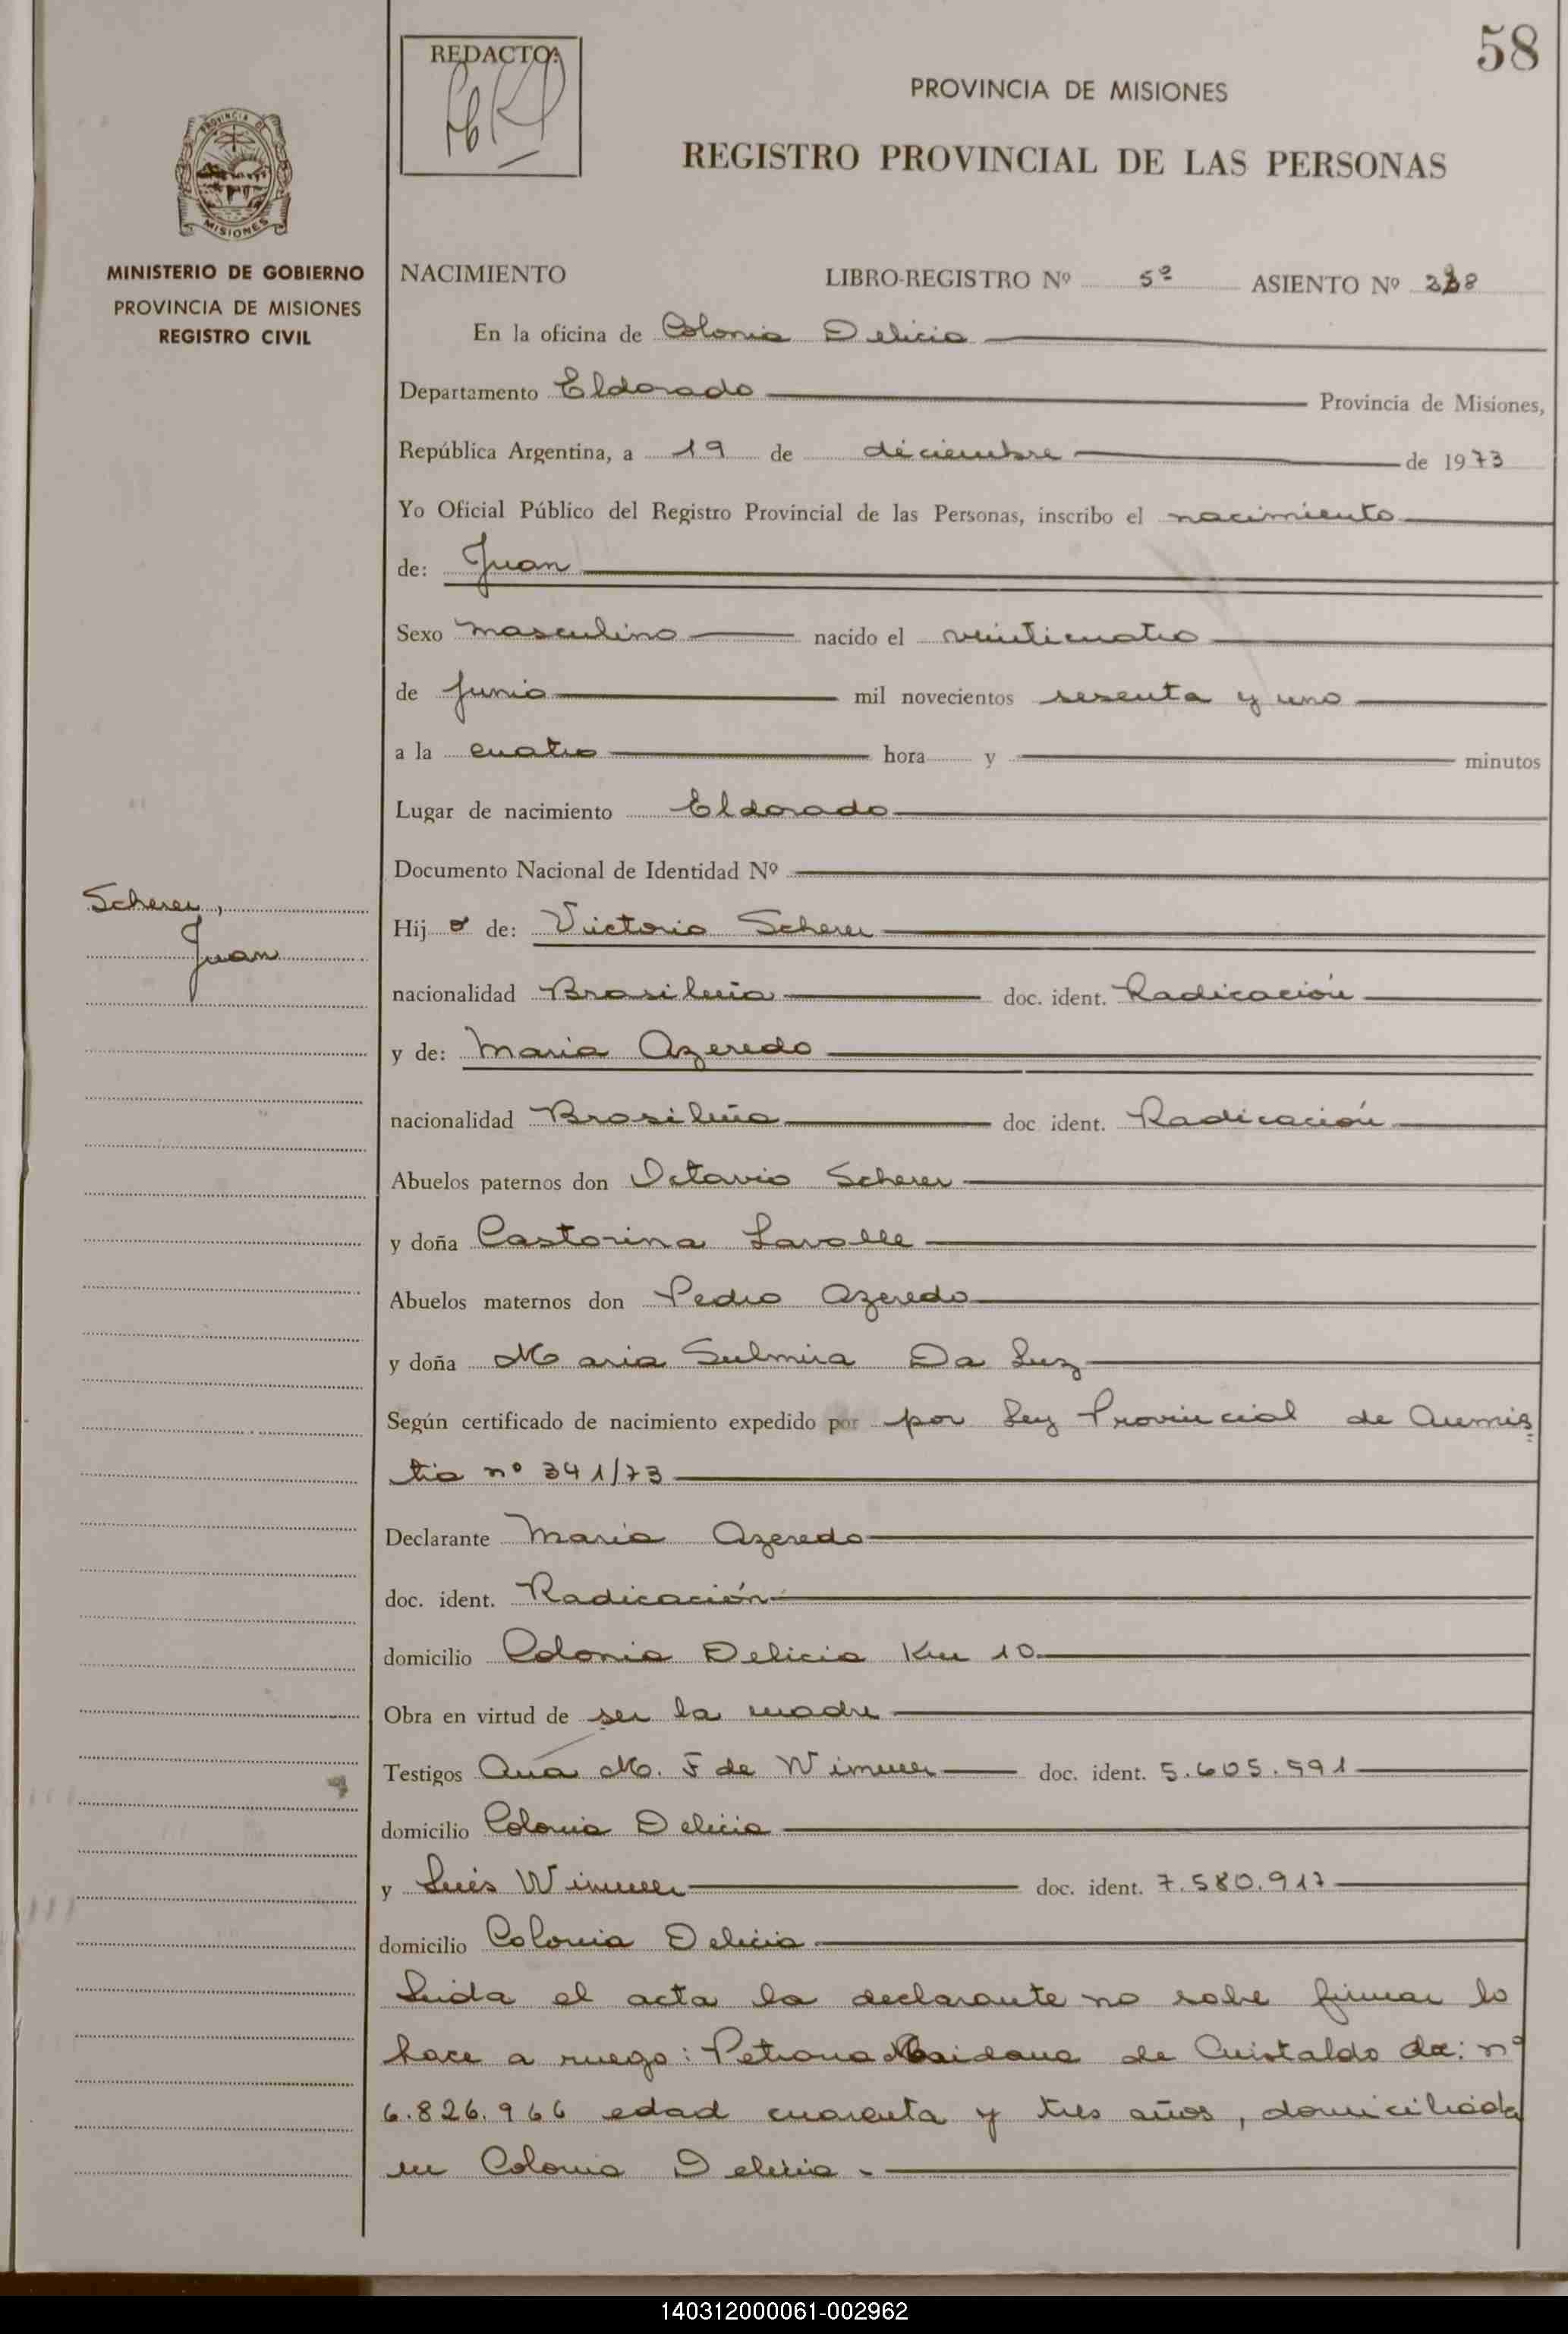 58
REDACTO:
PROVINCIA DE MISIONES
REGISTRO PROVINCIAL DE LAS PERSONAS
PROVINCIA DE
MISIONES
MINISTERIO DE GOBIERNO
PROVINCIA DE MISIONES
REGISTRO CIVIL
NACIMIENTO LIBRO-REGISTRO Nº 5º ASIENTO Nº
En la oficina de Colonia Delicia
Departamento Eldorado Provincia de Misiones,
República Argentina, a 19 de diciembre de 1973
Yo Oficial Público del Registro Provincial de las Personas, inscribo el nacimiento
de: Juan
Sexo masculino nacido el veinticuatro
de junio mil novecientos sesenta y uno
a la cuatro hora y minutos
Lugar de nacimiento Eldorado
Documento Nacional de Identidad Nº
Scherer,
Juan
Hij o de: Victorio Scherer
nacionalidad Brasileña doc. ident. Radicación
y de: Maria Azeredo
nacionalidad Brasileña doc. ident. Radicación
Abuelos paternos don Octavio Scherer
y doña Castorina Lavalle
Abuelos maternos don Pedro Azeredo
y doña Maria Sulmira Da Luz
Según certificado de nacimiento expedido por por Ley Provincial de Amnis
tia nº 341/73
Declarante Maria Azeredo
doc. ident. Radicación
domicilio Colonia Delicia Km 10
Obra en virtud de ser la madre
Testigos Ana M. F de Wimmer doc. ident. 5.605.591
domicilio Colonia Delicia
y Luis Wimmer doc. ident. 7.580.917
domicilio Colonia Delicia
Leida el acta la declarante no sabe firmar lo
hace a ruego: Petrona Maidana de Cristaldo dc: nº
6.826.966 edad cuarenta y tres años, domiciliada
en Colonia Delicia.
140312000061-002962